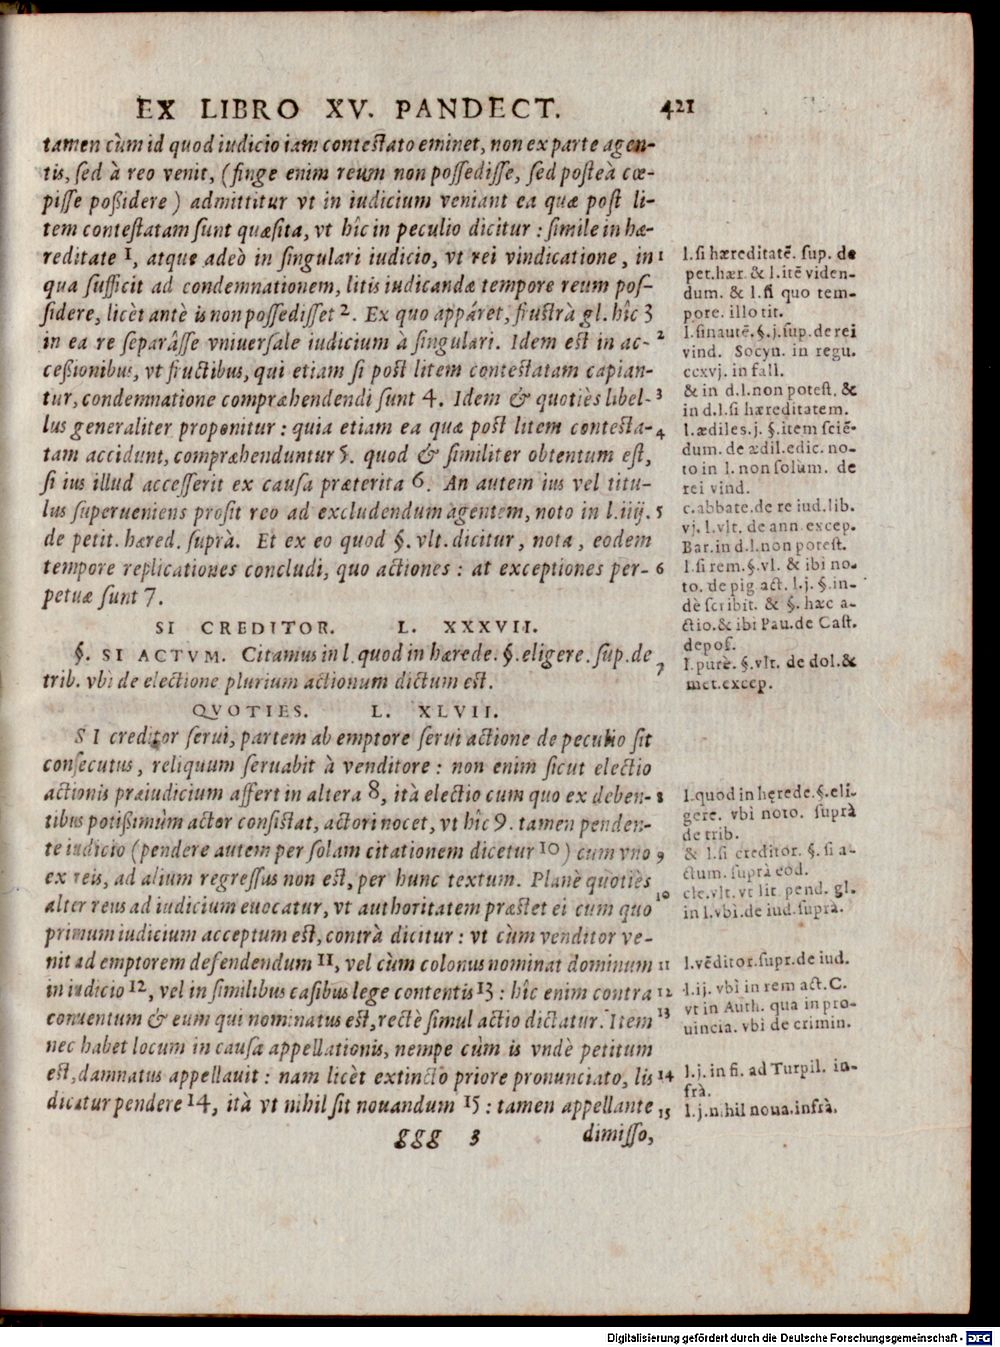 EX LIBRO XV. PANDECT. 421
tamen cùm id quod iudicio iam contestato eminet, non ex parte agen-
tis, sed à reo venit, (finge enim reum non possedisse, sed posteà cœ-
pisse poßidere) admittitur vt in iudicium veniant ea quæ post li-
tem contestatam sunt quæsita, vt hîc in peculio dicitur: simile in hæ-
reditate 1, atque adeò in singulari iudicio, vt rei vindicatione, in
qua sufficit ad condemnationem, litis iudicandæ tempore reum pos-
sidere, licèt antè is non possedisset 2. Ex quo appáret, frustrà gl. hîc 3
in ea re separâsse vniuersale iudicium à singulari. Idem est in ac-
ceßionibus, vt fructibus, qui etiam si post litem contestatam capian-
tur, condemnatione compræhendendi sunt 4. Idem & quotiès libel-
lus generaliter proponitur: quia etiam ea quæ post litem contesta-
tam accidunt, compræhenduntur 5. quod & similiter obtentum est,
si ius illud accesserit ex causa præterita 6. An autem ius vel titu-
lus superueniens prosit reo ad excludendum agentem, noto in l. iiij.
de petit. hæred. suprà. Et ex eo quod §. vlt. dicitur, nota, eodem
tempore replicationes concludi, quo actiones: at exceptiones per-
petuæ sunt 7.
SI CREDITOR. L. XXXVII.
§. SI ACTVM. Citamus in l. quod in hærede. §. eligere. sup. de
trib. vbi de electione plurium actionum dictum est.
QVOTIES. L. XLVII.
SI creditor serui, partem ab emptore serui actione de peculio sit
consecutus, reliquum seruabit à venditore: non enim sicut electio
actionis præiudicium affert in altera 8, ità electio cum quo ex deben-
tibus potißimùm actor consistat, actori nocet, vt hîc 9. tamen penden-
te iudicio (pendere autem per solam citationem dicetur 10) cum vno
ex reis, ad alium regressus non est, per hunc textum. Planè quotiès
alter reus ad iudicium euocatur, vt authoritatem præstet ei cum quo
primum iudicium acceptum est, contrà dicitur: vt cùm venditor ve-
nit ad emptorem defendendum 11, vel cùm colonus nominat dominum
in iudicio 12, vel in similibus casibus lege contentis 13: hîc enim contra
conuentum & eum qui nominatus est, rectè simul actio dictatur. Item
nec habet locum in causa appellationis, nempe cùm is vndè petitum
est, damnatus appellauit: nam licèt extincto priore pronunciato, lis
dicatur pendere 14, ità vt nihil sit nouandum 15: tamen appellante
ggg 3 dimisso,
1 l. si hæreditatē. sup. de
pet. hær. & l. itē viden-
dum. & l. si quo tem-
pore. illo tit.
2 l. si nautē. §. j. sup. de rei
vind. Socyn. in regu.
ccxvj. in fall.
3 & in d. l. non potest. &
in d. l. si hæreditatem.
4 l. ædiles. j. §. item sciē-
dum. de ædil. edic. no-
to in l. non solùm. de
rei vind.
5 c. abbate. de re iud. lib.
vj. l. vlt. de ann. excep.
Bar. in d. l. non potest.
6 l. si rem. §. vl. & ibi no-
to. de pig. act. l. j. §. in-
dè scribit. & §. hæc a-
ctio. & ibi Pau. de Cast.
depos.
7 l. purè. §. vlt. de dol. &
met. excep.
8 l. quod in hęrede. §. eli-
gere. vbi noto. suprà
de trib.
9 & l. si creditor. §. si a-
ctum. suprà eod.
10 cle. vlt. vt lit. pend. gl.
in l. vbi. de iud. suprà.
11 l. vēditor. supr. de iud.
12 l. ij. vbi in rem act. C.
13 vt in Auth. qua in pro-
uincia. vbi de crimin.
14 l. j. in fi. ad Turpil. in-
frà.
15 l. j. nihil noua. infrà.
Digitalisierung gefördert durch die Deutsche Forschungsgemeinschaft - DFG